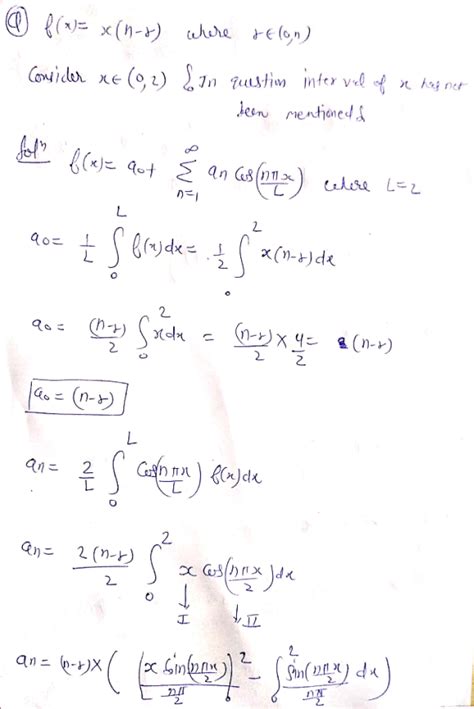 Q f(x) = x(n-r) where r∈(0,n)
Consider x∈(0,2) { In question interval of x has not
been mentioned }
Solⁿ f(x) = a0+ ∞ Σ n=1 an Cos(nπx/L) where L=2
a0 = 1/L ∫₀ᴸ f(x)dx = 1/2 ∫₀² x(n-r)dx
a0 = (n-r)/2 ∫₀² xdx = (n-r)/2 × 4/2 = (n-r)
a0 = (n-r)
an = 2/L ∫₀ᴸ Cos(nπx/L) f(x)dx
an = 2(n-r)/2 ∫₀² x Cos(nπx/2)dx
↓ I ↓ II
an = (n-r)× ( [x Sin(nπx/2) / nπ/2]₀² - ∫₀² Sin(nπx/2) / nπ/2 dx )